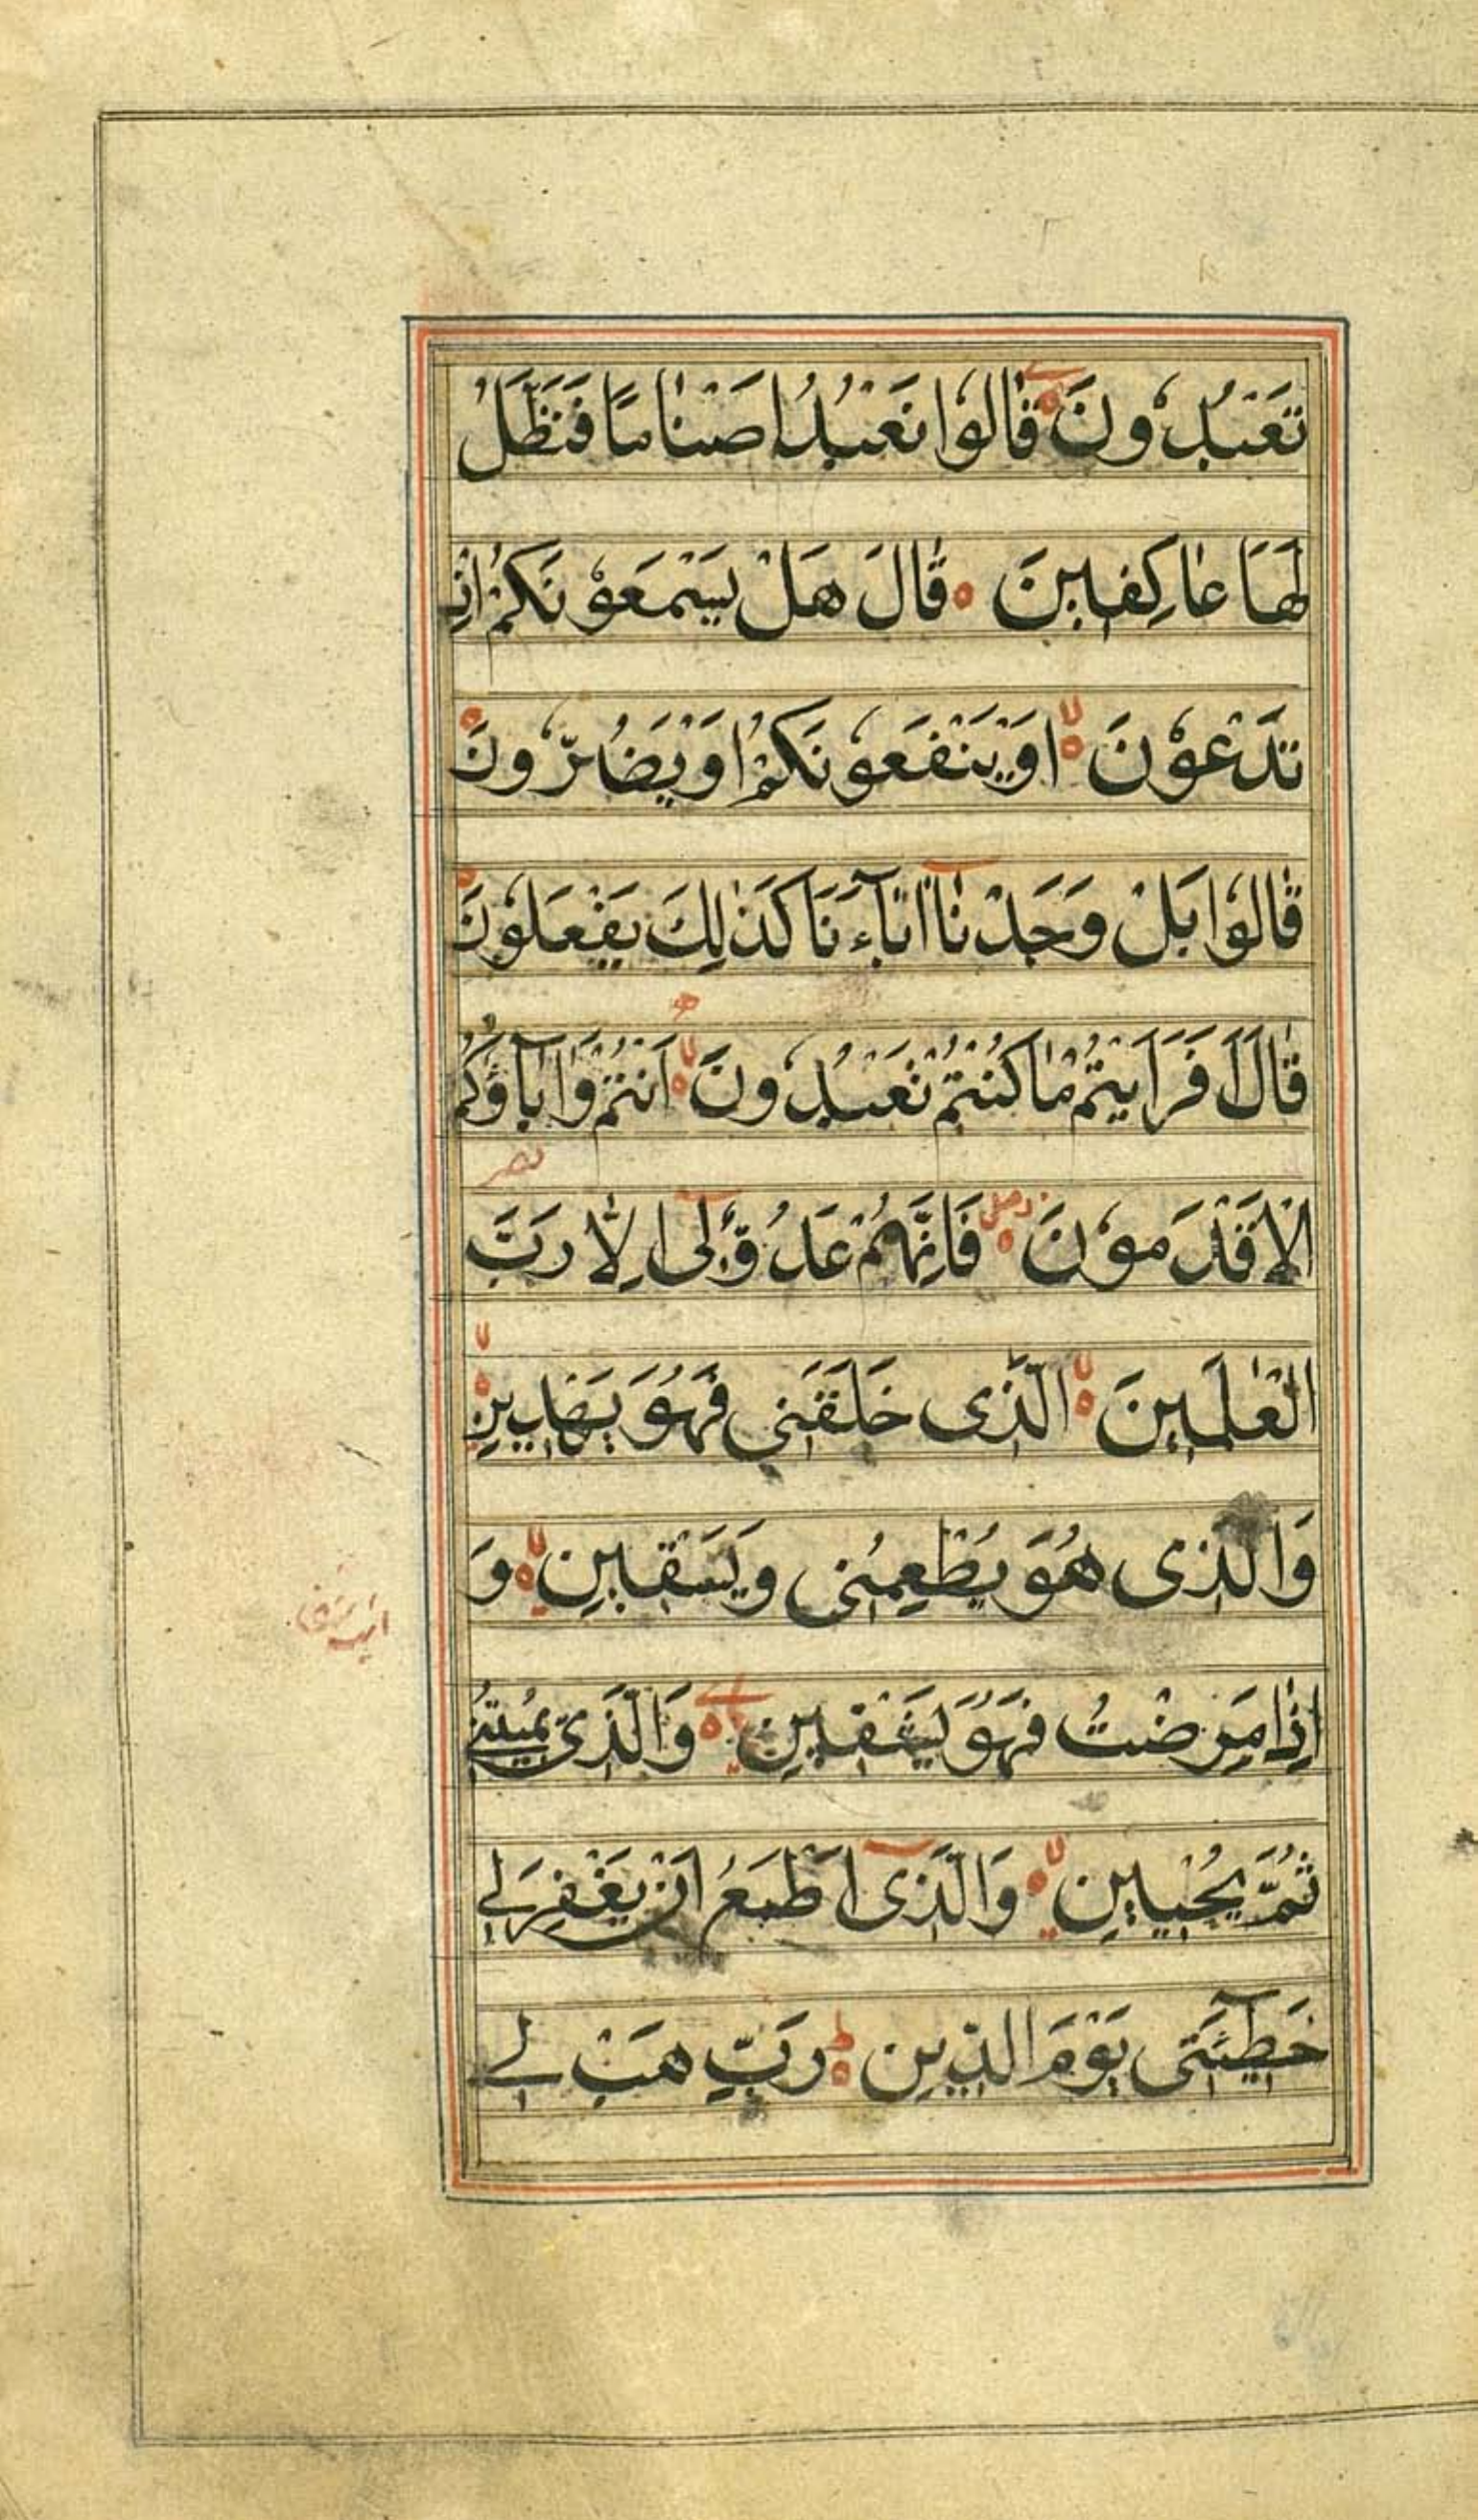 تَعْبُدُونَ قَالُوا نَعْبُدُ اصْنَامًا فَنَظَلُّ
لَهَا عَاكِفِينَ قَالَ هَلْ يَسْمَعُونَكُمْ اِذْ
تَدْعُونَ اَوْ يَنْفَعُونَكُمْ اَوْ يَضُرُّونَ
قَالُوا بَلْ وَجَدْنَا اٰبَاءَنَا كَذٰلِكَ يَفْعَلُونَ
قَالَ اَفَرَاَيْتُمْ مَا كُنْتُمْ تَعْبُدُونَ اَنْتُمْ وَاٰبَاؤُكُمُ
الْاَقْدَمُونَ فَاِنَّهُمْ عَدُوٌّ لِى اِلَّا رَبَّ
الْعٰلَمِينَ الَّذِى خَلَقَنِى فَهُوَ يَهْدِينِ
وَالَّذِى هُوَ يُطْعِمُنِى وَيَسْقِينِ وَ
اِذَا مَرِضْتُ فَهُوَ يَشْفِينِ وَالَّذِى يُمِيتُنِى
ثُمَّ يُحْيِينِ وَالَّذِى اَطْمَعُ اَنْ يَغْفِرَ لِى
خَطِيئَتِى يَوْمَ الدِّينِ رَبِّ هَبْ لِى